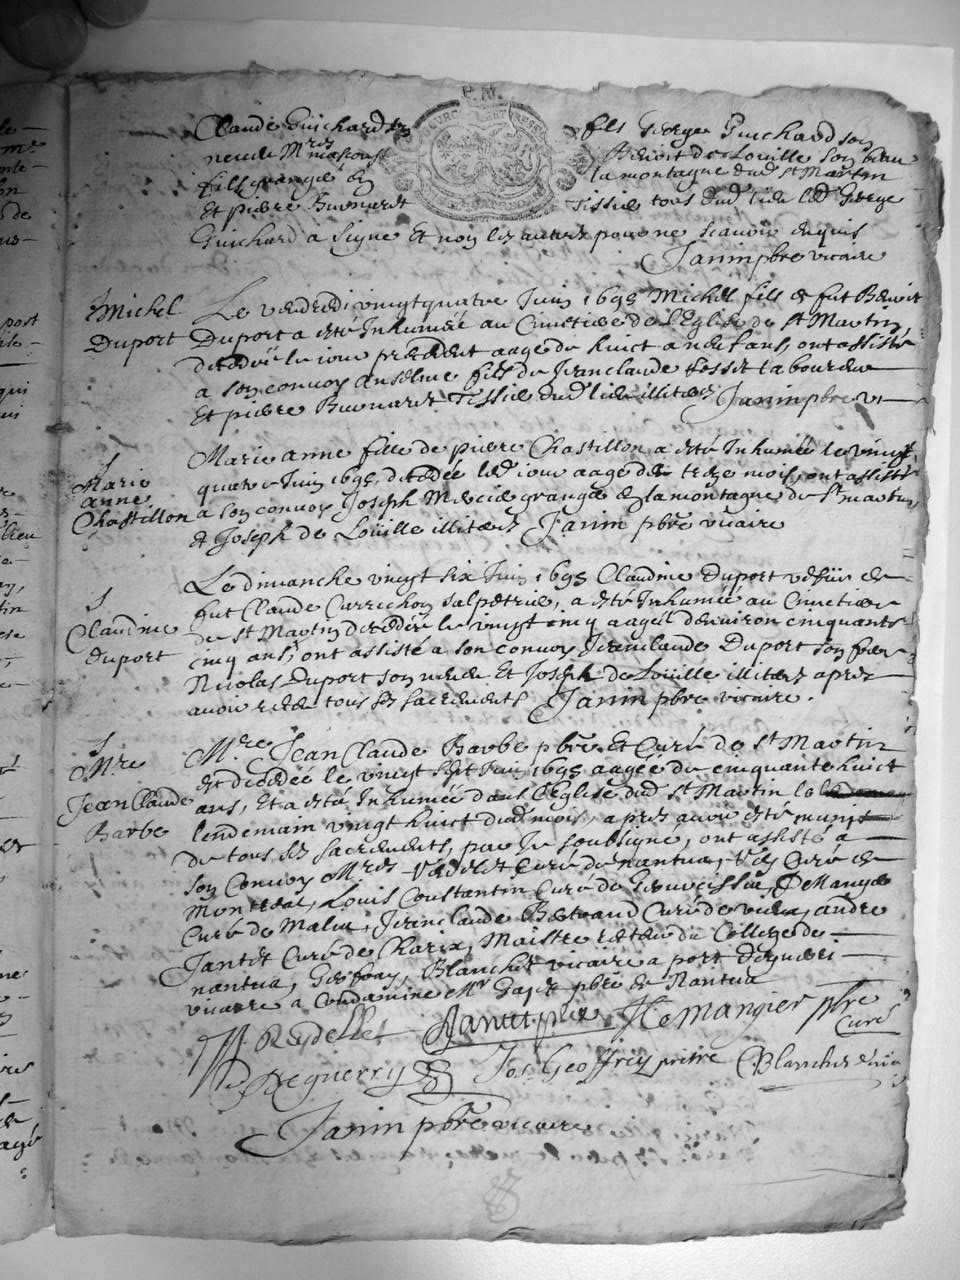 Claude Guichard
fils George Guichard son
neveu Mres
Benoit de Louille son beau
fill granger
la montagne dud St Martin
Et pierre Buonard
Tissie tous dud lieu led George
Guichard a signe Et non les autres pour ne scavoir enquis
Janin pbre vicaire
Michel
Duport
Le vendredi vingtquatre Juin 1695 Michel fils de fut Benoit
Duport a esté Inhumée au Cimetiere de l'Eglise de St Martin,
decedé le jour precedent aage de huict a neuf ans, ont assisté
a son convoy Anselme fils de Jeanclaude laboureur
Et pierre Buonard Tissie dud lieu illiteres Janin pbre vi
Marie
anne
Chastillon
Marie anne fille de pierre Chastillon a esté Inhumée le vingt
quatre Juin 1695 decedée led jour aage de treze mois, ont assisté
a son convoy Joseph Mercie granger de la montagne de St martin
et Joseph de Louille illiteres Janin pbre vicaire
Claudine
duport
Le dimanche vingt six Juin 1695 Claudine Duport vefve de
fut Claude Currichon salpetrier, a esté Inhumée au Cimetiere
de St Martin decedée le vingt cinq aagée d'environ cinquante
cinq ans, ont assisté a son convoy Jeanclaude Duport son frere
Nicolas Duport son neveu Et Joseph de Louille illiteres apres
avoir receu tous les sacrements Janin pbre vicaire.
Mre
Jean Claude
Barbe
Mre Jean Claude Barbe pbre Et Curé de St Martin
est decedée le vingt sept Juin 1695 aagée de cinquante huict
ans, Et a esté Inhumée dans l'Eglise dud St Martin le
lendemain vingt huict dud mois, apres avoir esté munit
de tous les sacrements, par Je soubsigné, ont assisté a
son Convoy Mres Curé de nantua, Curé de
Montreal, Louis Constantin Curé de Geovreissia, Demangier
Curé de Maliat, Jeanclaude Bertrand Curé de vieux, andre
Jantet Curé de Charix, Maistre recteur du College de
nantua, Geofray, Blanchet vicaire a port Deguerri
vicaire a Condamine Mr pbre de Nantua
Reydellet Jantet pbre Demangier pbre
Curé
Deguerry Jos. Geoffrey pritre Blanchet vic
Janin pbre vicaire